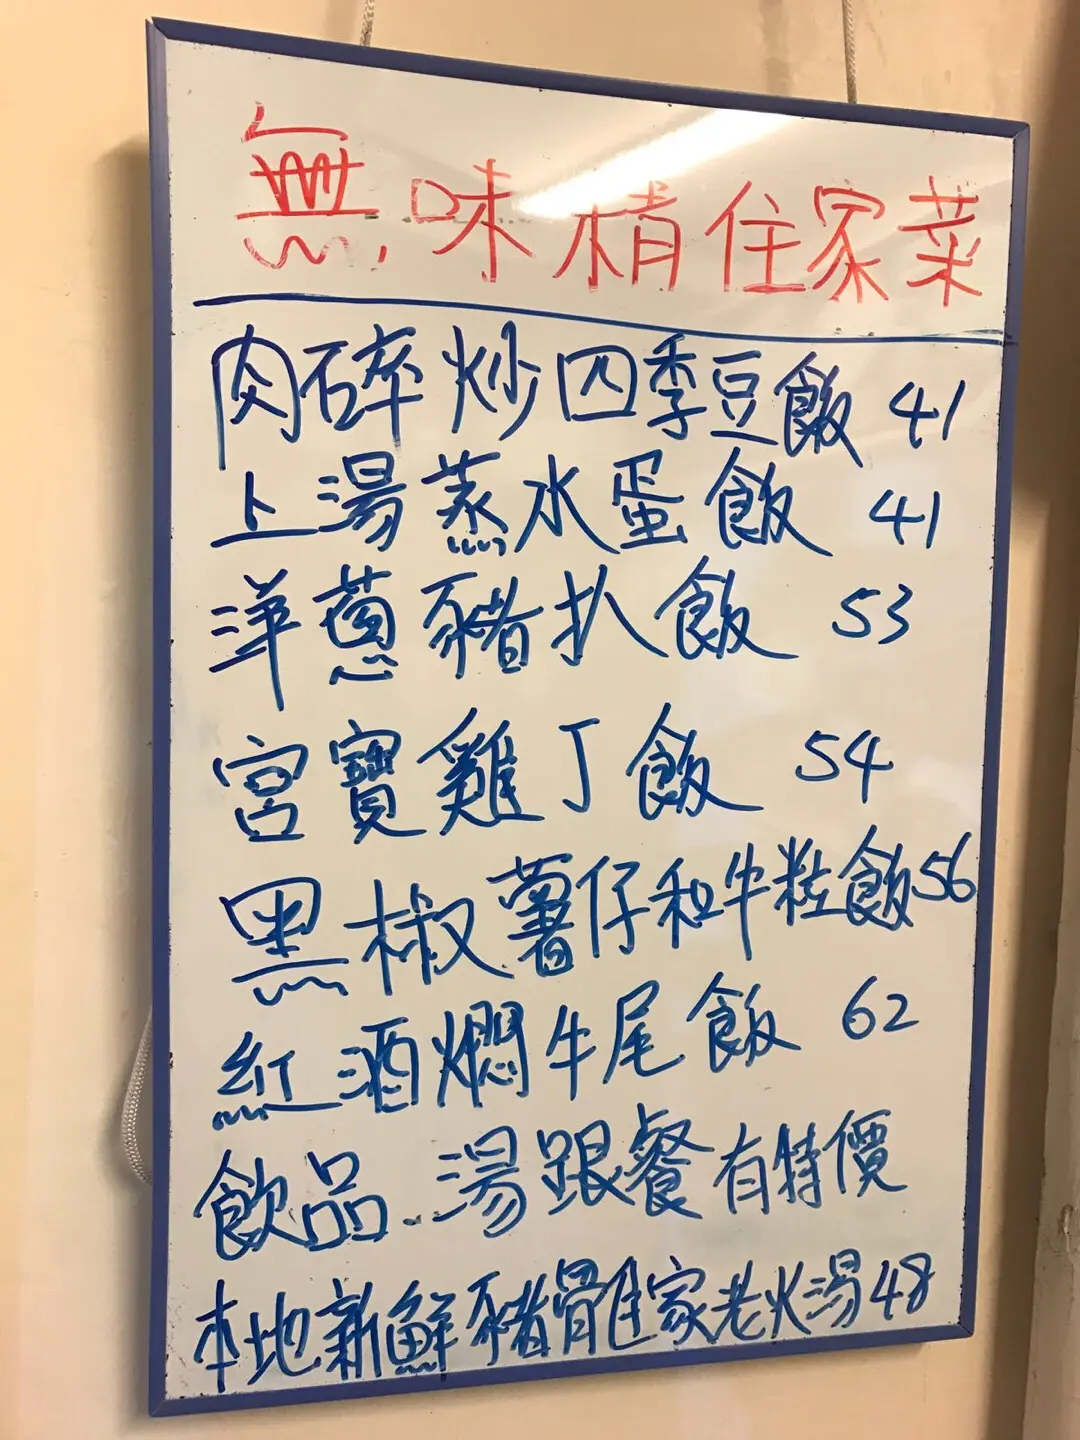 無味精住家菜
肉碎炒四季豆飯 41
上湯蒸水蛋飯 41
洋蔥豬扒飯 53
宮寶雞丁飯 54
黑椒薯仔和牛粒飯 56
紅酒燜牛尾飯 62
飲品..湯跟餐有特價
本地新鮮豬骨住家老火湯 48